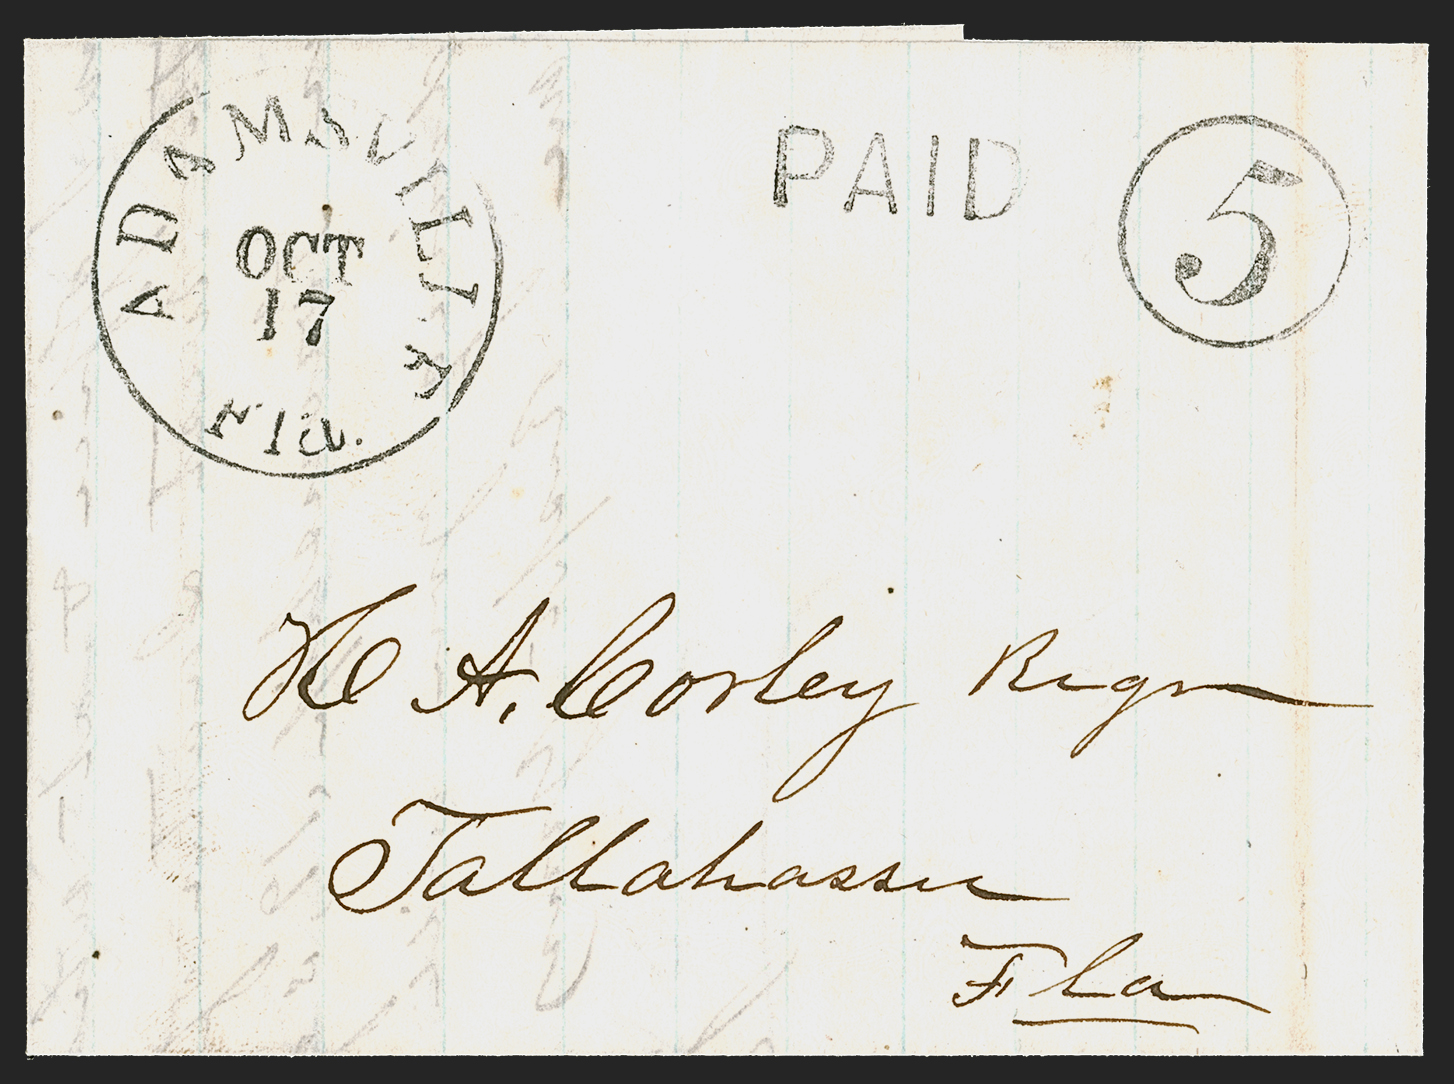 ADAMSVILLE
OCT
17
Fla.
PAID
5
H A. Corley Regr
Tallahassee
Fla